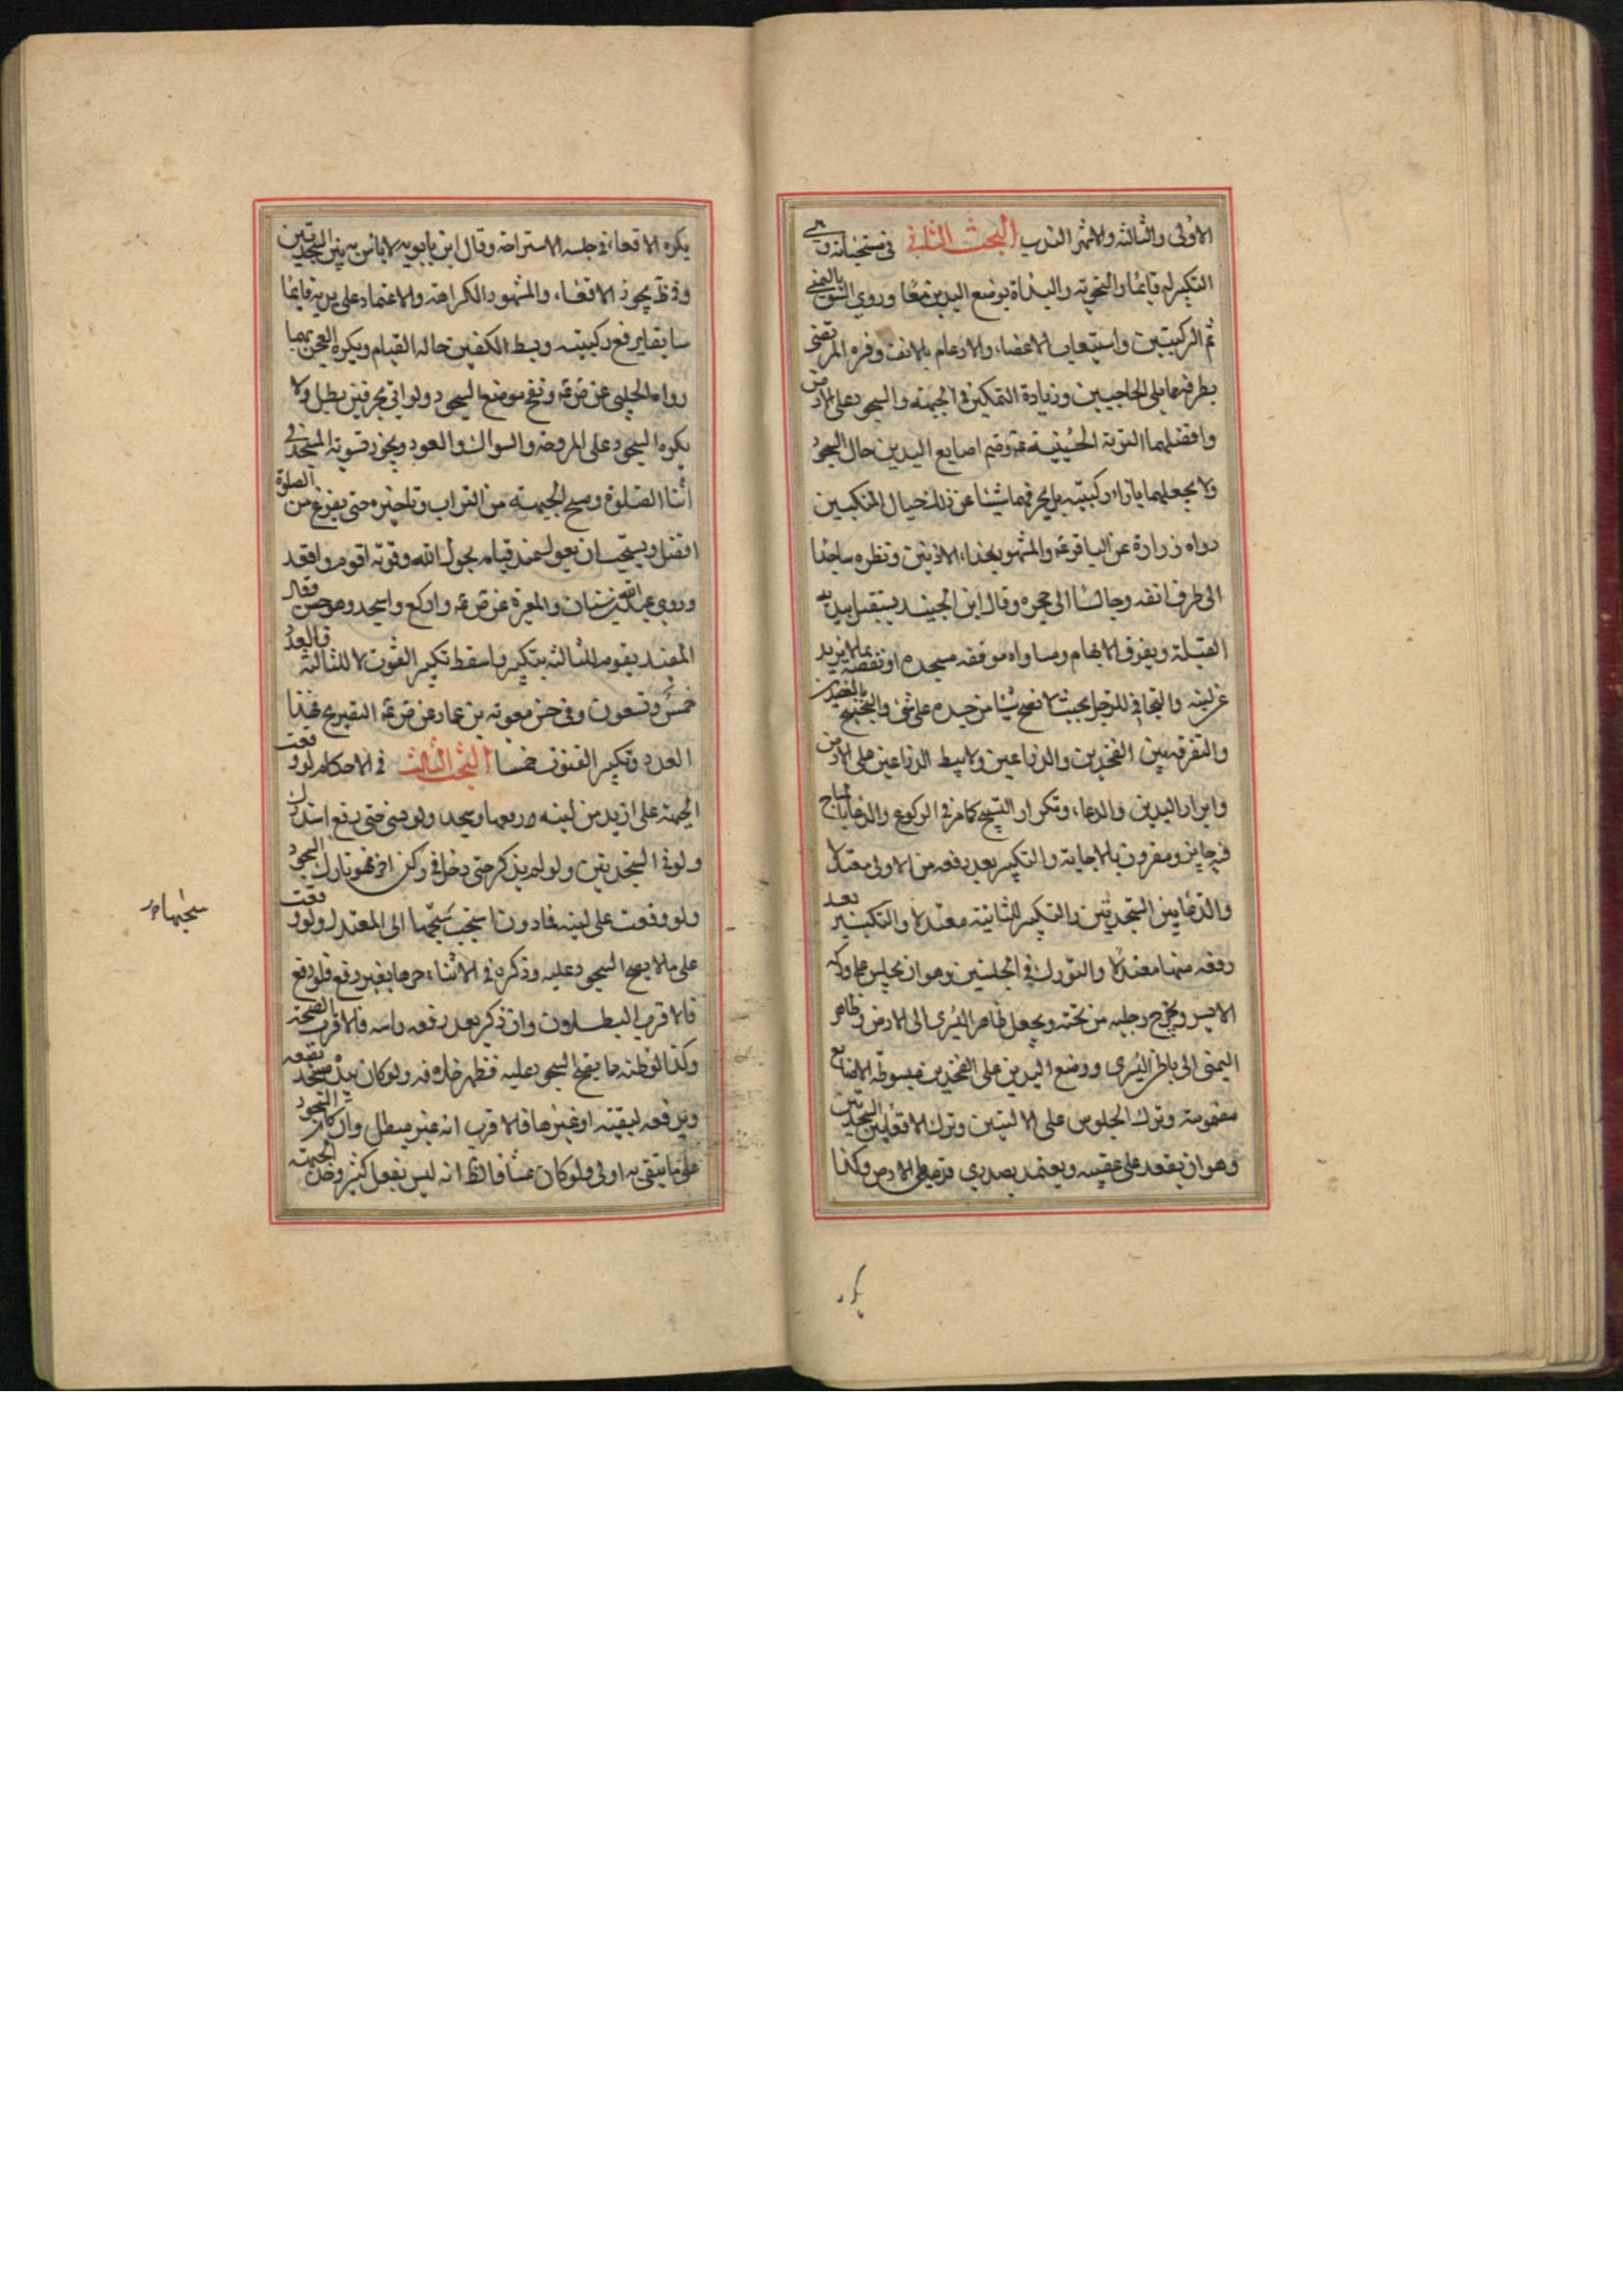 الاولى والثالثة والاشهر الندب البحث الثاني في مستحباته وهي
التكبير له قائما والتخوية والبداة بوضع اليدين معا وروى السبق باليمنى
ثم الركبتين واستيعاب الاعضاء والارغام بالانف وفسره المرتضى
بطرفه مما يلي الحاجبين وزيادة التمكين في الجبهة والسجود على الارض
وافضلها التربة الحسينية وضم اصابع اليدين حال السجود
ولا يجعلهما بازاء ركبتيه بل يحرفهما شيئا عن ذلك حيال المنكبين
رواه زرارة عن الباقر ع والمشهور بحذاء الاذنين ونظره ساجدا
الى طرف انفه وجالسا الى حجره وقال ابن الجنيد يستقبل بيديه
القبلة ويفرق الابهام ومساواة موقفه مسجده او نقصه بما لا يزيد
عن لبنة والتجافي للرجل بحيث لا يضع شيئا من جسده على شئ والتجنيح بالعضدين
والتفرقة بين الفخذين والذراعين ولا يبسط الذراعين على الارض
وابراز اليدين والدعاء وتكرار التسبيح كما مر في الركوع والدعاء بالمباح
فيه جايز ومقرون بالاجابة والتكبير بعد رفعه من الاولى معتدلا
والدعا بين السجدتين والتكبير للثانية معتدلا والتكبير بعد
رفعه منها معتدلا والتورك في الجلستين وهو ان يجلس على وركه
الايسر ويخرج رجليه من تحته ويجعل ظاهر اليسرى الى الارض وظاهر
اليمنى الى باطن اليسرى ووضع اليدين على الفخذين مبسوطة الاصابع
مضمومة وترك الجلوس على الاليتين وترك الاقعا بين السجدتين
وهو ان يقعد على عقبيه ويعتمد بصدري قدميه على الارض وكذا
يكره
يكره الاقعاء في جلسه الاستراحه وقال ابن بابويه لا باس به بين السجدتين
وفي ظ يجوز الاقعاء، والمشهور الكراهة والاعتماد على يديه قايما
سابقا برفع ركبتيه وبسط الكفين حاله القيام ويكره العجن بهما
رواه الحلبي عن ص ع ونفخ موضع السجود ولو اتى بحرفين بطل ولا
يكره السجود على المروحه والسواك والعود ويجوز تسوية المسجد في
اثنا الصلوة ومسح الجبهة من التراب وتاخيره حتى يفرغ من الصلوة
افضل ويستحب ان يقول عند قيامه بحول الله وقوته اقوم واقعد
وروى عبد الله بن سنان والمغيرة عن ص ع واركع واسجد وهو حسن وقال
المفيد يقوم للثالثة بتكبير واسقط تكبير القنوت لا للثالثة فالعدد
خمس وتسعون وفي حسن معوية بن عمار عن ص ع التصريح بهذا
العدد وتكبير القنوت خمسا البحث الثالث في الاحكام لو وقعت
الجبهة على ازيد من لبنه رفعها وسجد ولو نسي حتى رفع استدرك
ولو في السجدتين ولو لم يذكر حتى دخل في ركن اخر فهو تارك السجود
ولو وقعت على لبنه فادون استحب سحبها الى المعتدل ولو وقعت
على ما لا يصح السجود عليه وذكره في الاثناء جرها بغير رفع فلو رفع
فالاقرب البطلان وان ذكر بعد رفعه راسه فالاقرب الصحة
وكذا لو ظنه ما يصح السجود عليه فظهر خلافه ولو كان بيده مسجد يضعه
ويرفعه لتقية او غيرها فالاقرب انه غير مبطل وان كان السجود
على ما يتقى به اولى ولو كان عبثا فالظ انه ليس بفعل كثير وحك الجبهة
سحبها